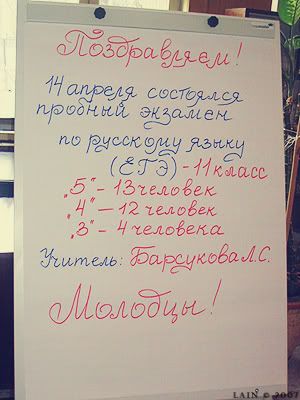 Поздравляем!
14 апреля состоялся
пробный экзамен
по русскому языку
(ЕГЭ) - 11 класс
„5“ - 13 человек
„4“ - 12 человек
„3“ - 4 человека
Учитель: Барсукова Л.С.
Молодцы!
LAIN © 2007